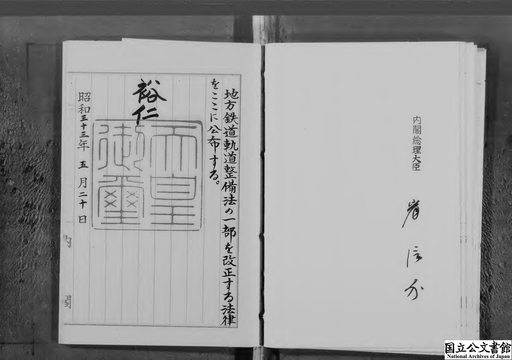 内閣総理大臣
岸信介
地方鉄道軌道整備法の一部を改正する法律
をここに公布する。
裕仁
天皇
御璽
昭和三十三年五月二十日
国立公文書館
National Archives of Japan